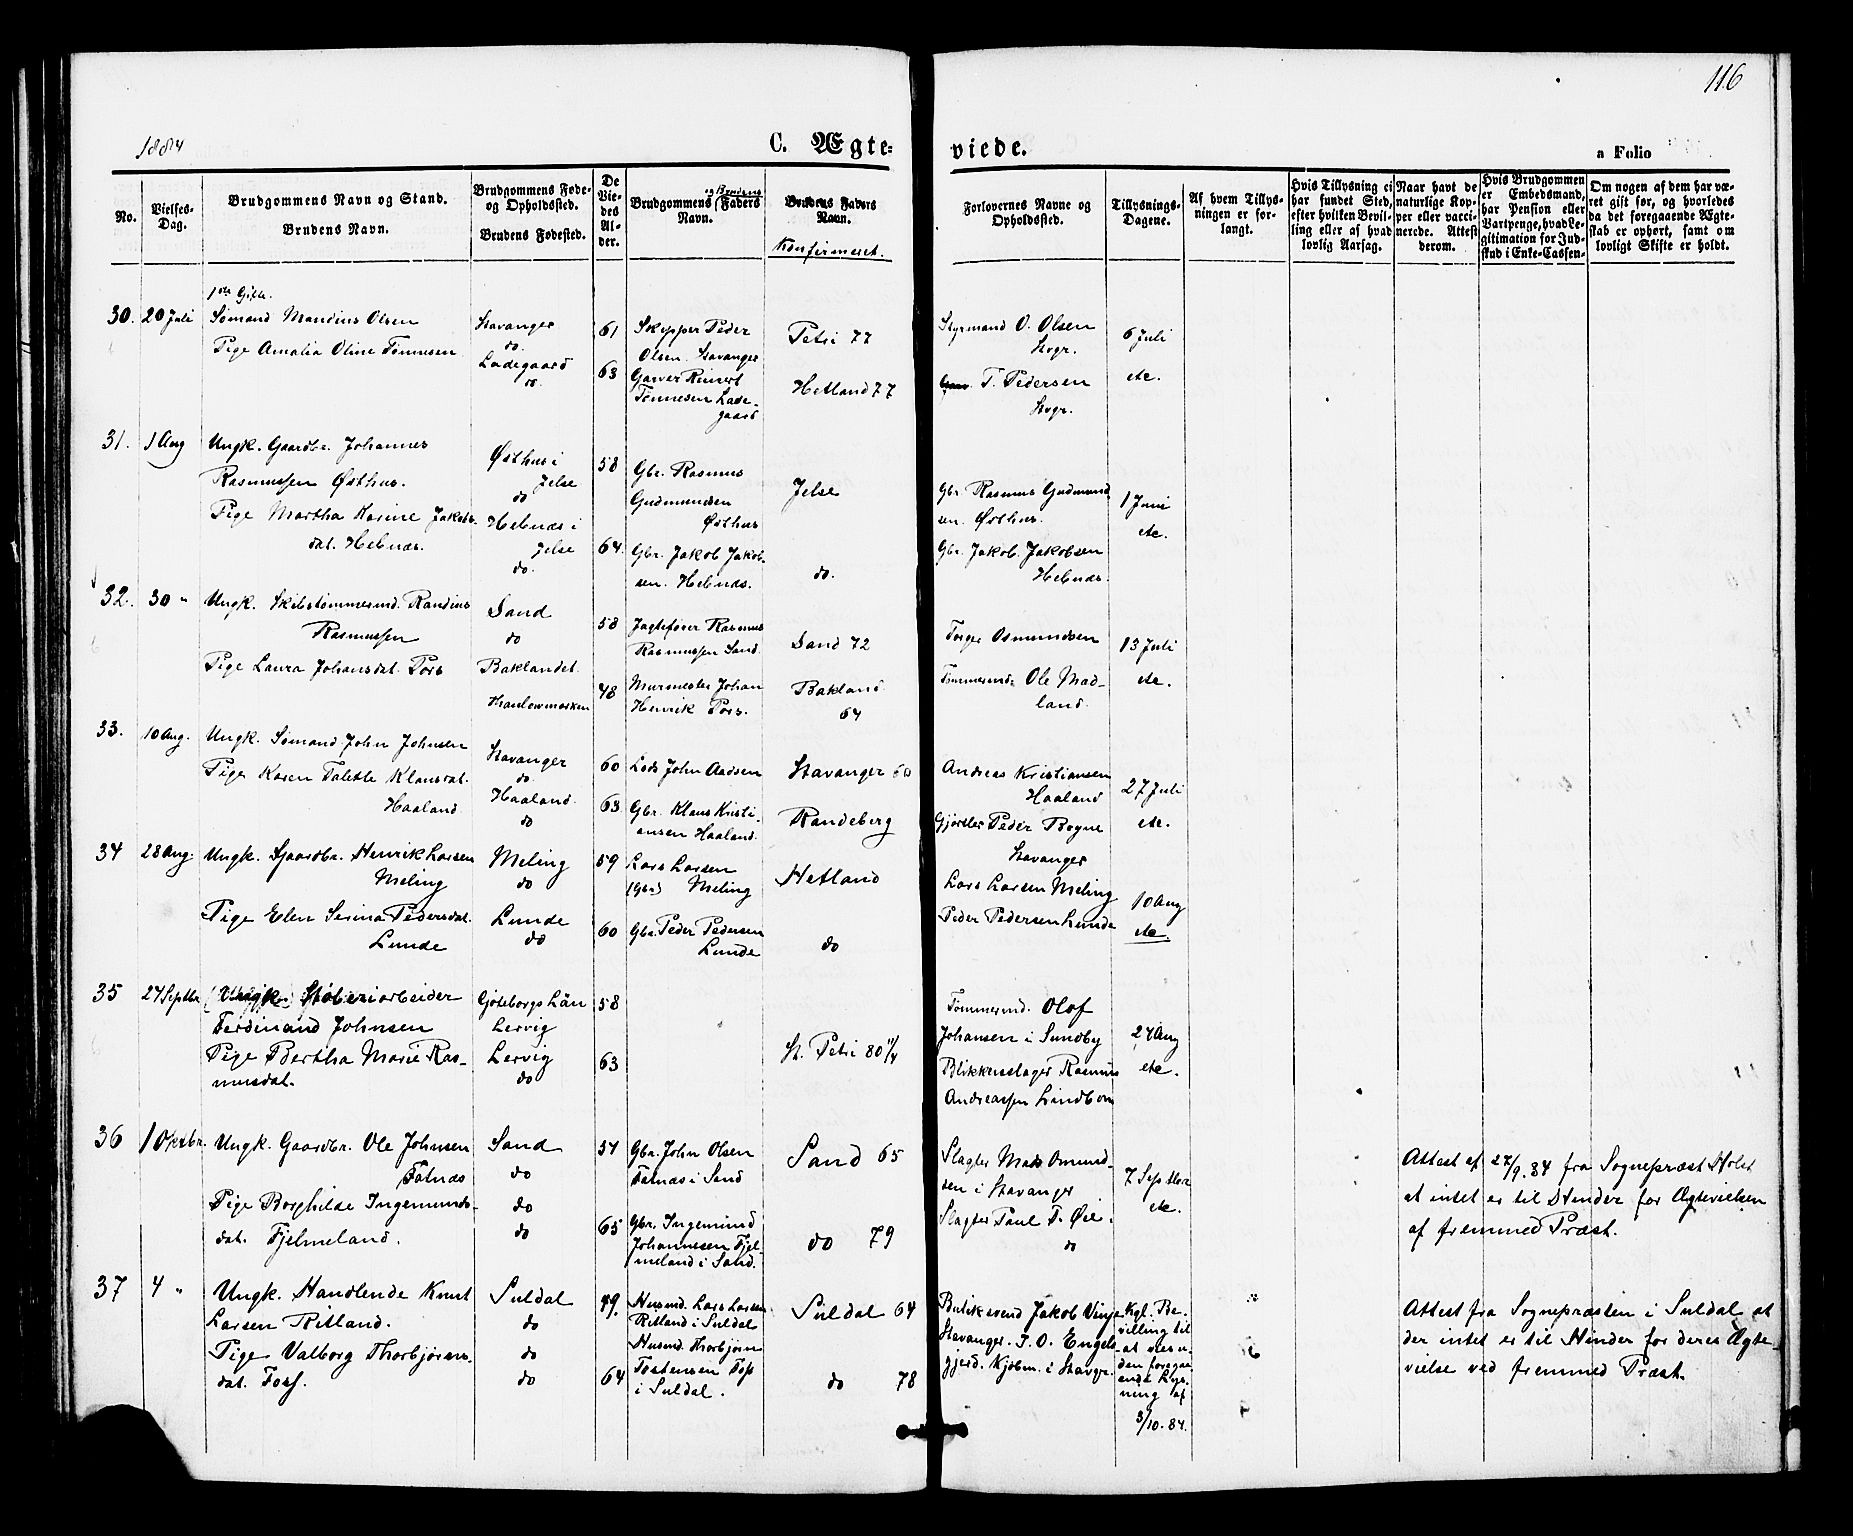 116
1884
C. Ægteviede.
a Folio
No.
Vielses-Dag.
Brudgommens Navn og Stand.
Brudens Navn.
Brudgommens Føde- og Opholdssted.
Brudens Fødested.
De Viedes Alder.
Brudgommens og Brudens Faders Navn.
Brudens Faders Navn.
Konfirmeret.
Forlovernes Navne og Opholdssted.
Tillysnings-Dagene.
Af hvem Tillysningen er forlangt.
Hvis Tillysning ei har fundet Sted, efter hvilken Bevilling eller af hvad lovlig Aarsag.
Naar havt de naturlige Kopper eller vaccinerede. Attest derom.
Hvis Brudgommen er Embedsmand, har Pension eller Vartpenge, hvad Legitimation for Indskud i Enke-Cassen.
Om nogen af dem har været gift før, og hvorledes da det foregaaende Ægteskab er ophørt, samt om lovligt Skifte er holdt.
30. 20 Juli
1ste Gifte.
Sømand Mandius Olsen
Pige Amalia Oline Tønnesen
Stavanger
do.
Ladegaard
do.
61
63
Skipper Peder
Olsen. Stavanger
Garver Reinert
Tønnesen Lade-
gaard
Petri 77
Hetland 77
Styrmand O. Olsen
Stvgr.
T. Pedersen
Stvgr.
6 Juli
etc.
31. 1 Aug
Ungk. Gaardbr. Johannes
Rasmussen Østhus.
Pige Martha Karine Jakobs-
dat. Hebnæs.
Østhus i
Jelse
do
Hebnæs i
Jelse
do.
58
64.
Gbr. Rasmus
Gudmundsen
Østhus
Gbr. Jakob Jakob-
sen. Hebnæs.
Jelse
do.
Gbr. Rasmus Gudmund
sen. Østhus.
Gbr. Jakob Jakobsen
Hebnæs.
1 Juni
etc.
32. 30 "
Ungk. Skibstømmermd. Randius
Rasmussen
Pige Laura Johansdat. Pors
Sand
do
Baklandet
58
48
Jagtefører Rasmus
Rasmussen Sand.
Murmester Johan
Henrik Pors.
Sand 72
Bakland
64
Torger Osmundsen
Tømmermd. Ole Mad-
land.
13 Juli
etc.
33. 10 Aug.
Ungk. Sømand John Johnsen
Pige Karen Talette Klausdat.
Haaland
Stavanger
do.
Haaland.
do
60
63.
Lods John Aadsen
Gbr. Klaus Kristi-
ansen Haaland.
Stavanger 60
Randeberg
Andreas Kristiansen
Haaland
Gjørtler Peder Bogne
Stavanger
27 Juli
etc.
34 28 Aug.
Ungk. Gaardbr. Henrik Larsen
Meling
Pige Elen Serina Pedersdat.
Lunde
Meling
do
Lunde
do
59
60
Lars Larsen
(Gbr) Meling
Gbr. Peder Pedersen
Lunde
Hetland
do
Lars Larsen Meling
Peder Pedersen Lunde
10 Aug
etc
35 24 Septbr
(Ungk.) Støberiarbeider
Ferdinand Johnsen
Pige Bertha Marie Ras-
musdat.
Gøteborgs Län
Lervig
Lervig
do
58
63
St. Petri 80 11/4
Tømmermd. Olof
Johansen i Sundby
Blikkenslager Rasmus
Andreassen Lindbom
24 Aug
etc.
36 1 Oktbr.
Ungk. Gaardbr. Ole Johnsen
Fatnæs
Pige Borghilde Ingemunds-
dat. Fjelmeland.
Sand
do
do
do
54
65
Gbr. John Olsen
Fatnæs i Sand
Gbr. Ingemund
Johannesen Fjel-
meland i Sand.
Sand 65
do 79
Slagter Mads Omund-
sen i Stavanger
Slagter Paul T. Øie.
do
7 Septbr
etc.
Attest af 27/9. 84 fra Sognepræst Holst
at intet er til Hinder for Ægtevielsen
af fremmed Præst.
37 4 "
Ungk. Handlende Knut
Larsen Ritland.
Pige Valborg Thorbjørns-
dat. Foss.
Suldal
do
do
do
49.
64
Husmd. Lars Larsen
Ritland i Suldal
Husmd. Thorbjørn
Tostensen Foss
i Suldal.
Suldal 64
do 78
Butiksvend Jakob Vinje
Stavanger. T. O. Engels-
gjerd. Kjøbm. i Stavgr.
Kgl. Be-
villing til
at vies u-
den foregaa-
ende Lys-
ning af
3/10. 84.
Attest fra Sognepræsten i Suldal at
der intet er til Hinder for deres Ægte-
vielse ved fremmed Præst.